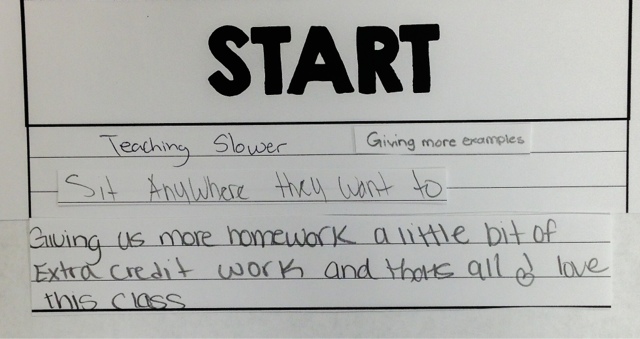 START
Teaching Slower Giving more examples
Sit Anywhere they want to
Giving us more homework a little bit of
Extra credit work and thats all I love
this class